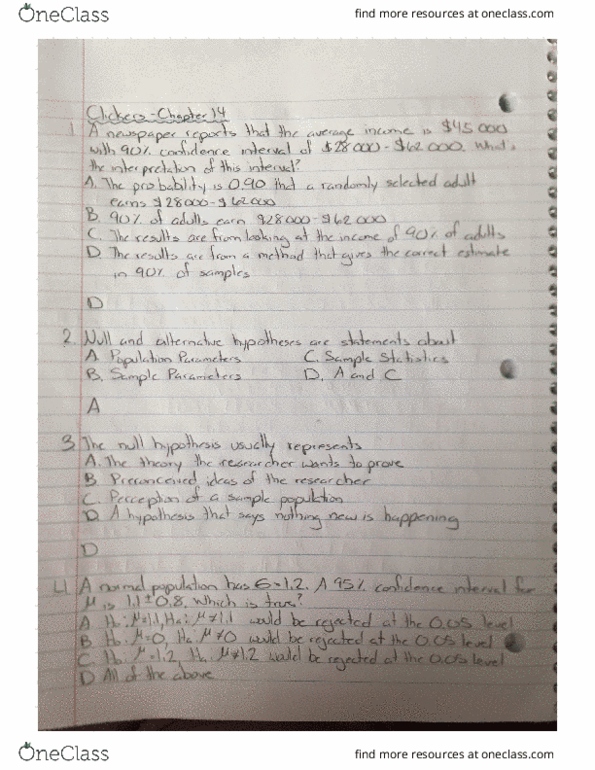 OneClass
find more resources at oneclass.com
Clickers - Chapter 14
1. A newspaper reports that the average income is $45 000
with 90% confidence interval of $28 000 - $62 000. What's
the interpretation of this interval?
A. The probability is 0.90 that a randomly selected adult
earns $28000 - $62000
B. 90% of adults earn $28000 - $62 000
C. The results are from looking at the income of 90% of adults
D. The results are from a method that gives the correct estimate
in 90% of samples
D
2. Null and alternative hypotheses are statements about
A. Population Parameters C. Sample Statistics
B. Sample Parameters D. A and C
A
3. The null hypothesis usually represents
A. The theory the researcher wants to prove
B. Preconceived ideas of the researcher
C. Perception of a sample population
D. A hypothesis that says nothing new is happening
D
4. A normal population has σ=1.2. A 95% confidence interval for
μ is 1.1 ± 0.8. Which is true?
A H₀: μ=1.1, Hₐ: μ≠1.1 would be rejected at the 0.05 level
B. H₀: μ=0, Hₐ μ≠0 would be rejected at the 0.05 level
C. H₀ μ=1.2, Hₐ μ≠1.2 would be rejected at the 0.05 level
D All of the above
OneClass
find more resources at oneclass.com